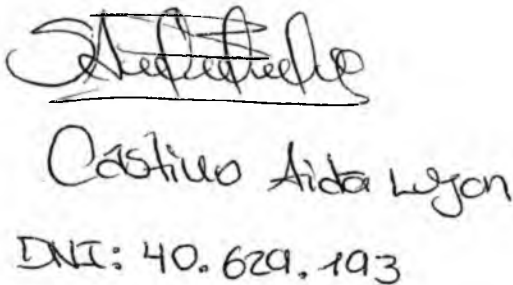 Castillo Aida Lujan
DNI: 40.629.193